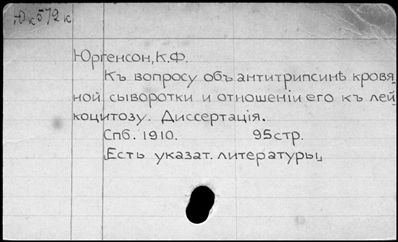 Юк572к
Юргенсон, К.Ф.
Къ вопросу объ антитрипсинѣ кровя
ной сыворотки и отношеніи его къ лей
коцитозу. Диссертація.
Спб. 1910. 95 стр.
Есть указат. литературы